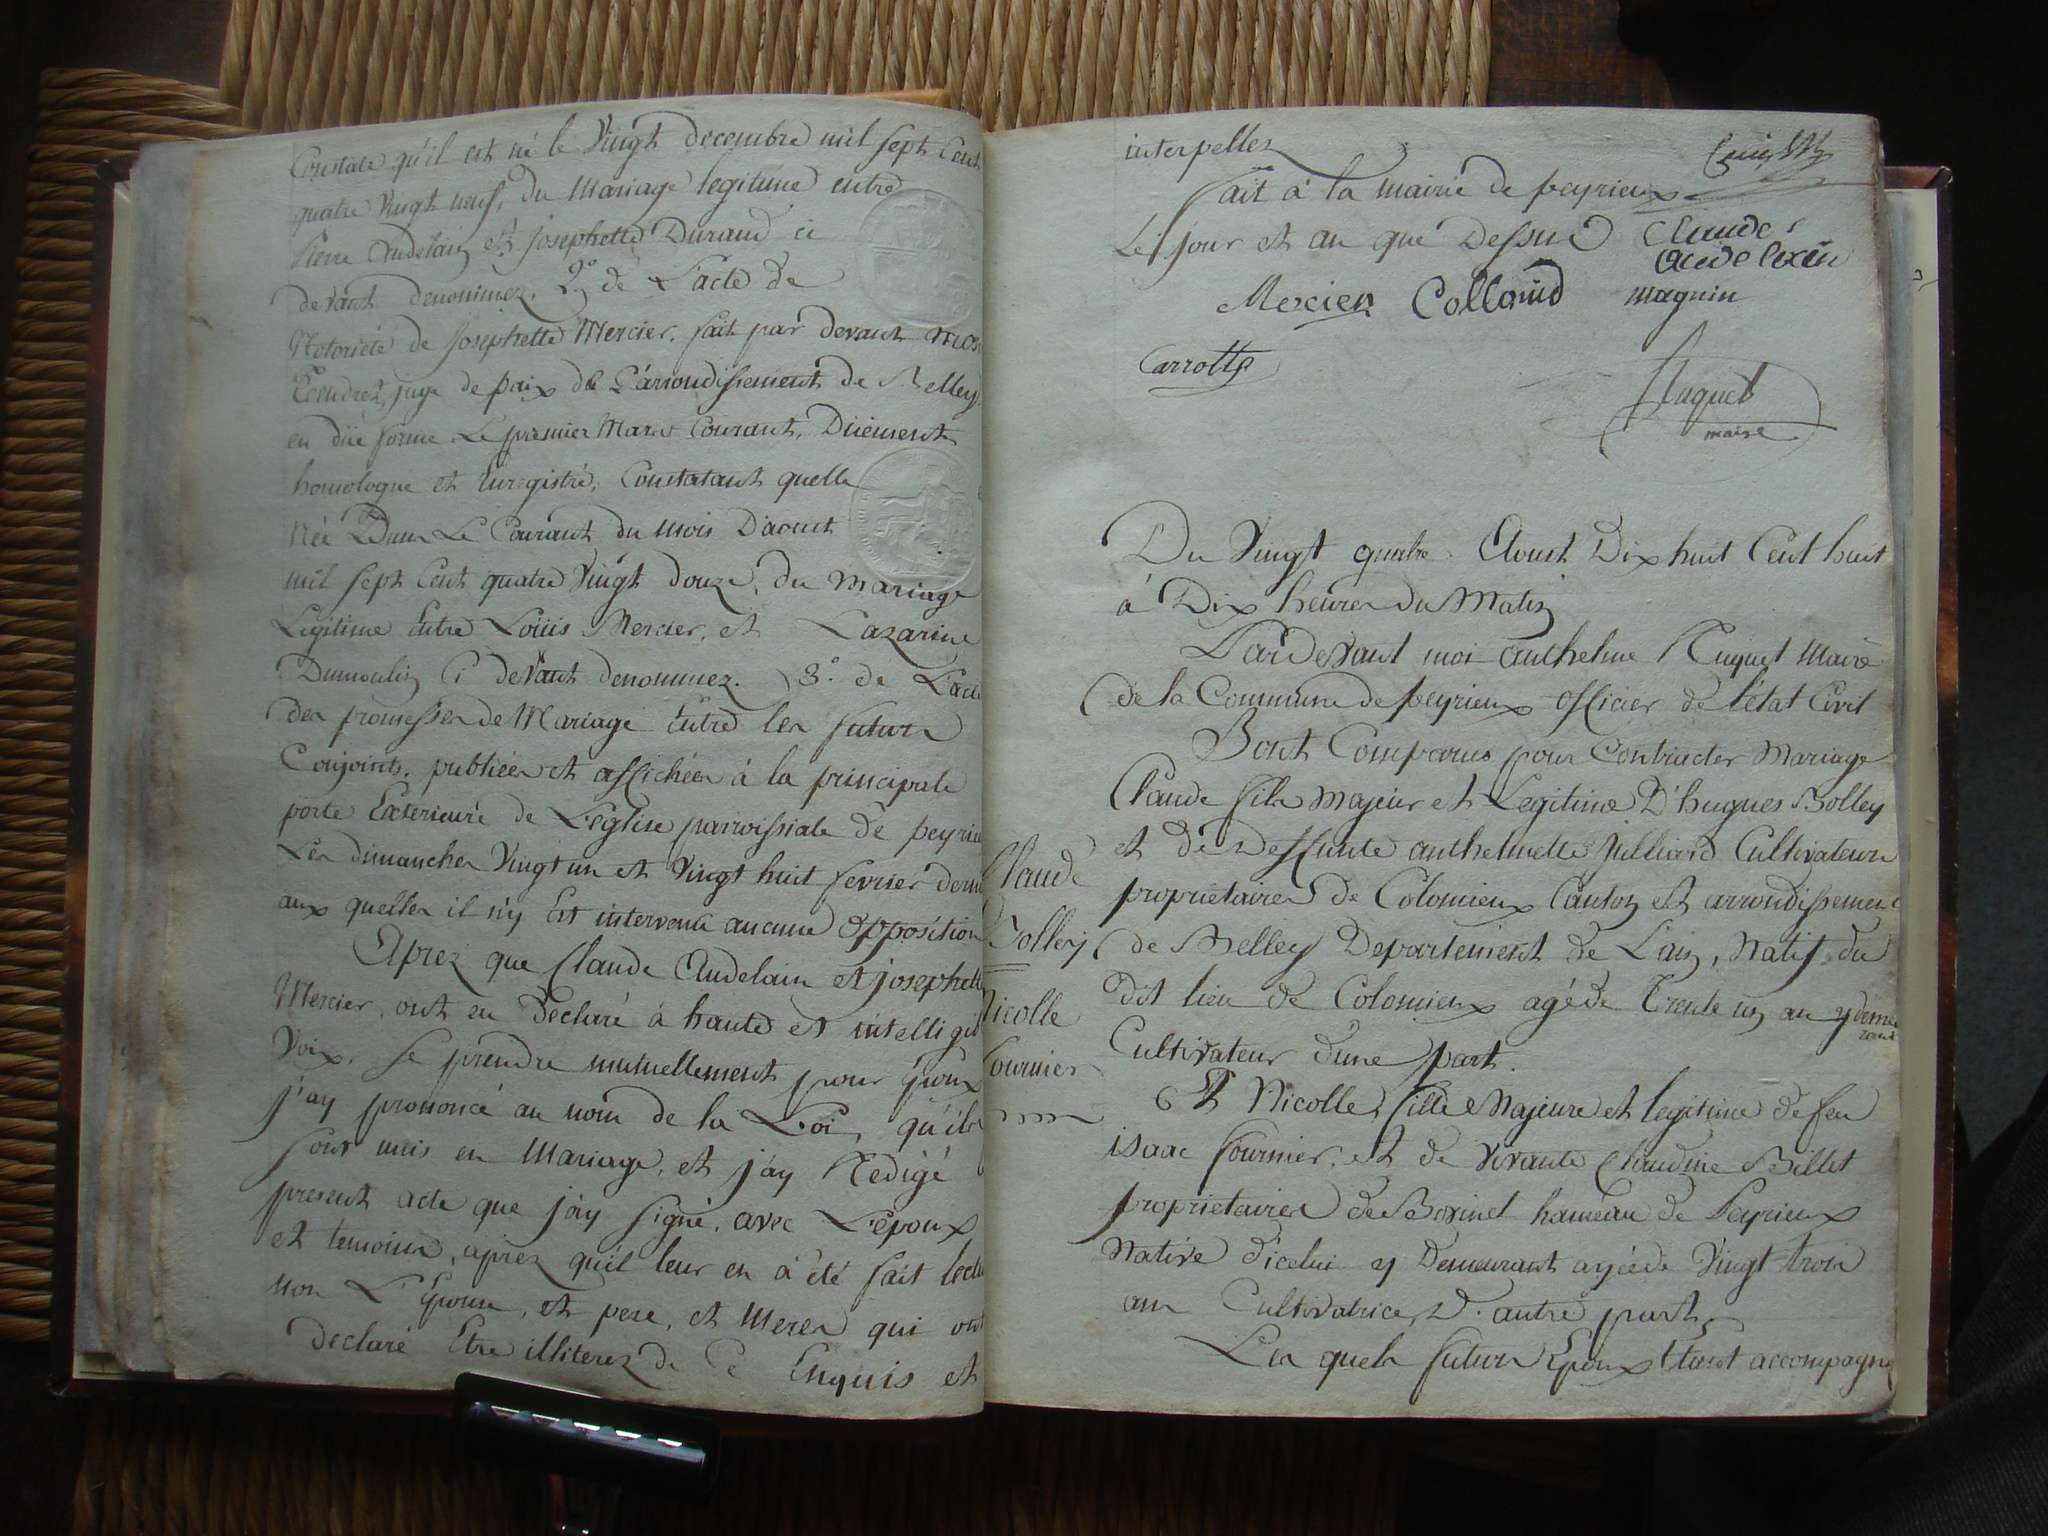 Constate qu'il est né le Vingt decembre mil sept Cent
quatre Vingt neuf, du Mariage legitime entre
Pierre Audelain et josephette Durand ci
devant denommez. 2.o de L'acte de
Notorieté de Josephette Mercier, fait par devant
juge de paix de L'arrondissement de Belley
en düe forme Le premier Mars Courant, Düement
homologue et Enregistré, Constatant quelle
Née Dans Le Courant du mois D'aoust
mil sept Cent quatre Vingt douze, du Mariage
Legitime Entre Loüis Mercier, et Lazarine
Dumoulin Ci devant denommez. 3.o de L'acte
des promesses de Mariage Entre les futurs
Conjoints, publiées et affichées à la principale
porte Exterieure de L'eglise parroissiale de peyrieu
Les dimanches Vingt un et Vingt huit fevrier
aux quelles il n'y Est intervenu aucune opposition
Aprez que Claude Audelain et josephette
Mercier, ont eu Declaré à haute et intelligib
Voix, se prendre mutuellement pour Epoux
j'ay prononcé au nom de la Loi, qu'ils
sont unis en Mariage, et j'ay Redigé
present acte que j'ay signé, avec L'epoux
et temoins, aprez qu'il leur en a été fait lectu
non L'Epouse, et pere, et Meres qui ont
declaré Etre illiterez de Ce Enquis et
interpellez
fait à la mairie de peyrieux
Le jour et an que Dessus Claude
audelain
Mercier Collomd magnin
Carrotte
Ruquet
maire
Du Vingt quatre Aoust Dix huit Cent huit
à Dix heures du Matin
Pardevant moi anthelme Ruquet Maire
de la Commune de peyrieux officier de l'état Civil
Sont Comparus pour Contracter Mariage
Claude fils majeur et Legitime D'hugues Bolley
et de Deffunte anthelmette Julliard Cultivateurs
proprietaires de Colomieux Canton et arrondissement
de Belley Departement de L'ain, Natif du
dit lieu de Colomieux agé de Trente un an y deme
rant
Cultivateur d'une part.
Et Nicolle fille Majeure et legitime de feu
isaac fournier, et de vivante Claudine Billet
proprietaires de Bovinel hameau de Peyrieux
Native d'icelui y Demeurant agée de Vingt trois
ans Cultivatrice, D'autre part
Les quels futurs Epoux Etant accompagn
Claude
Bolley
Nicolle
fournier